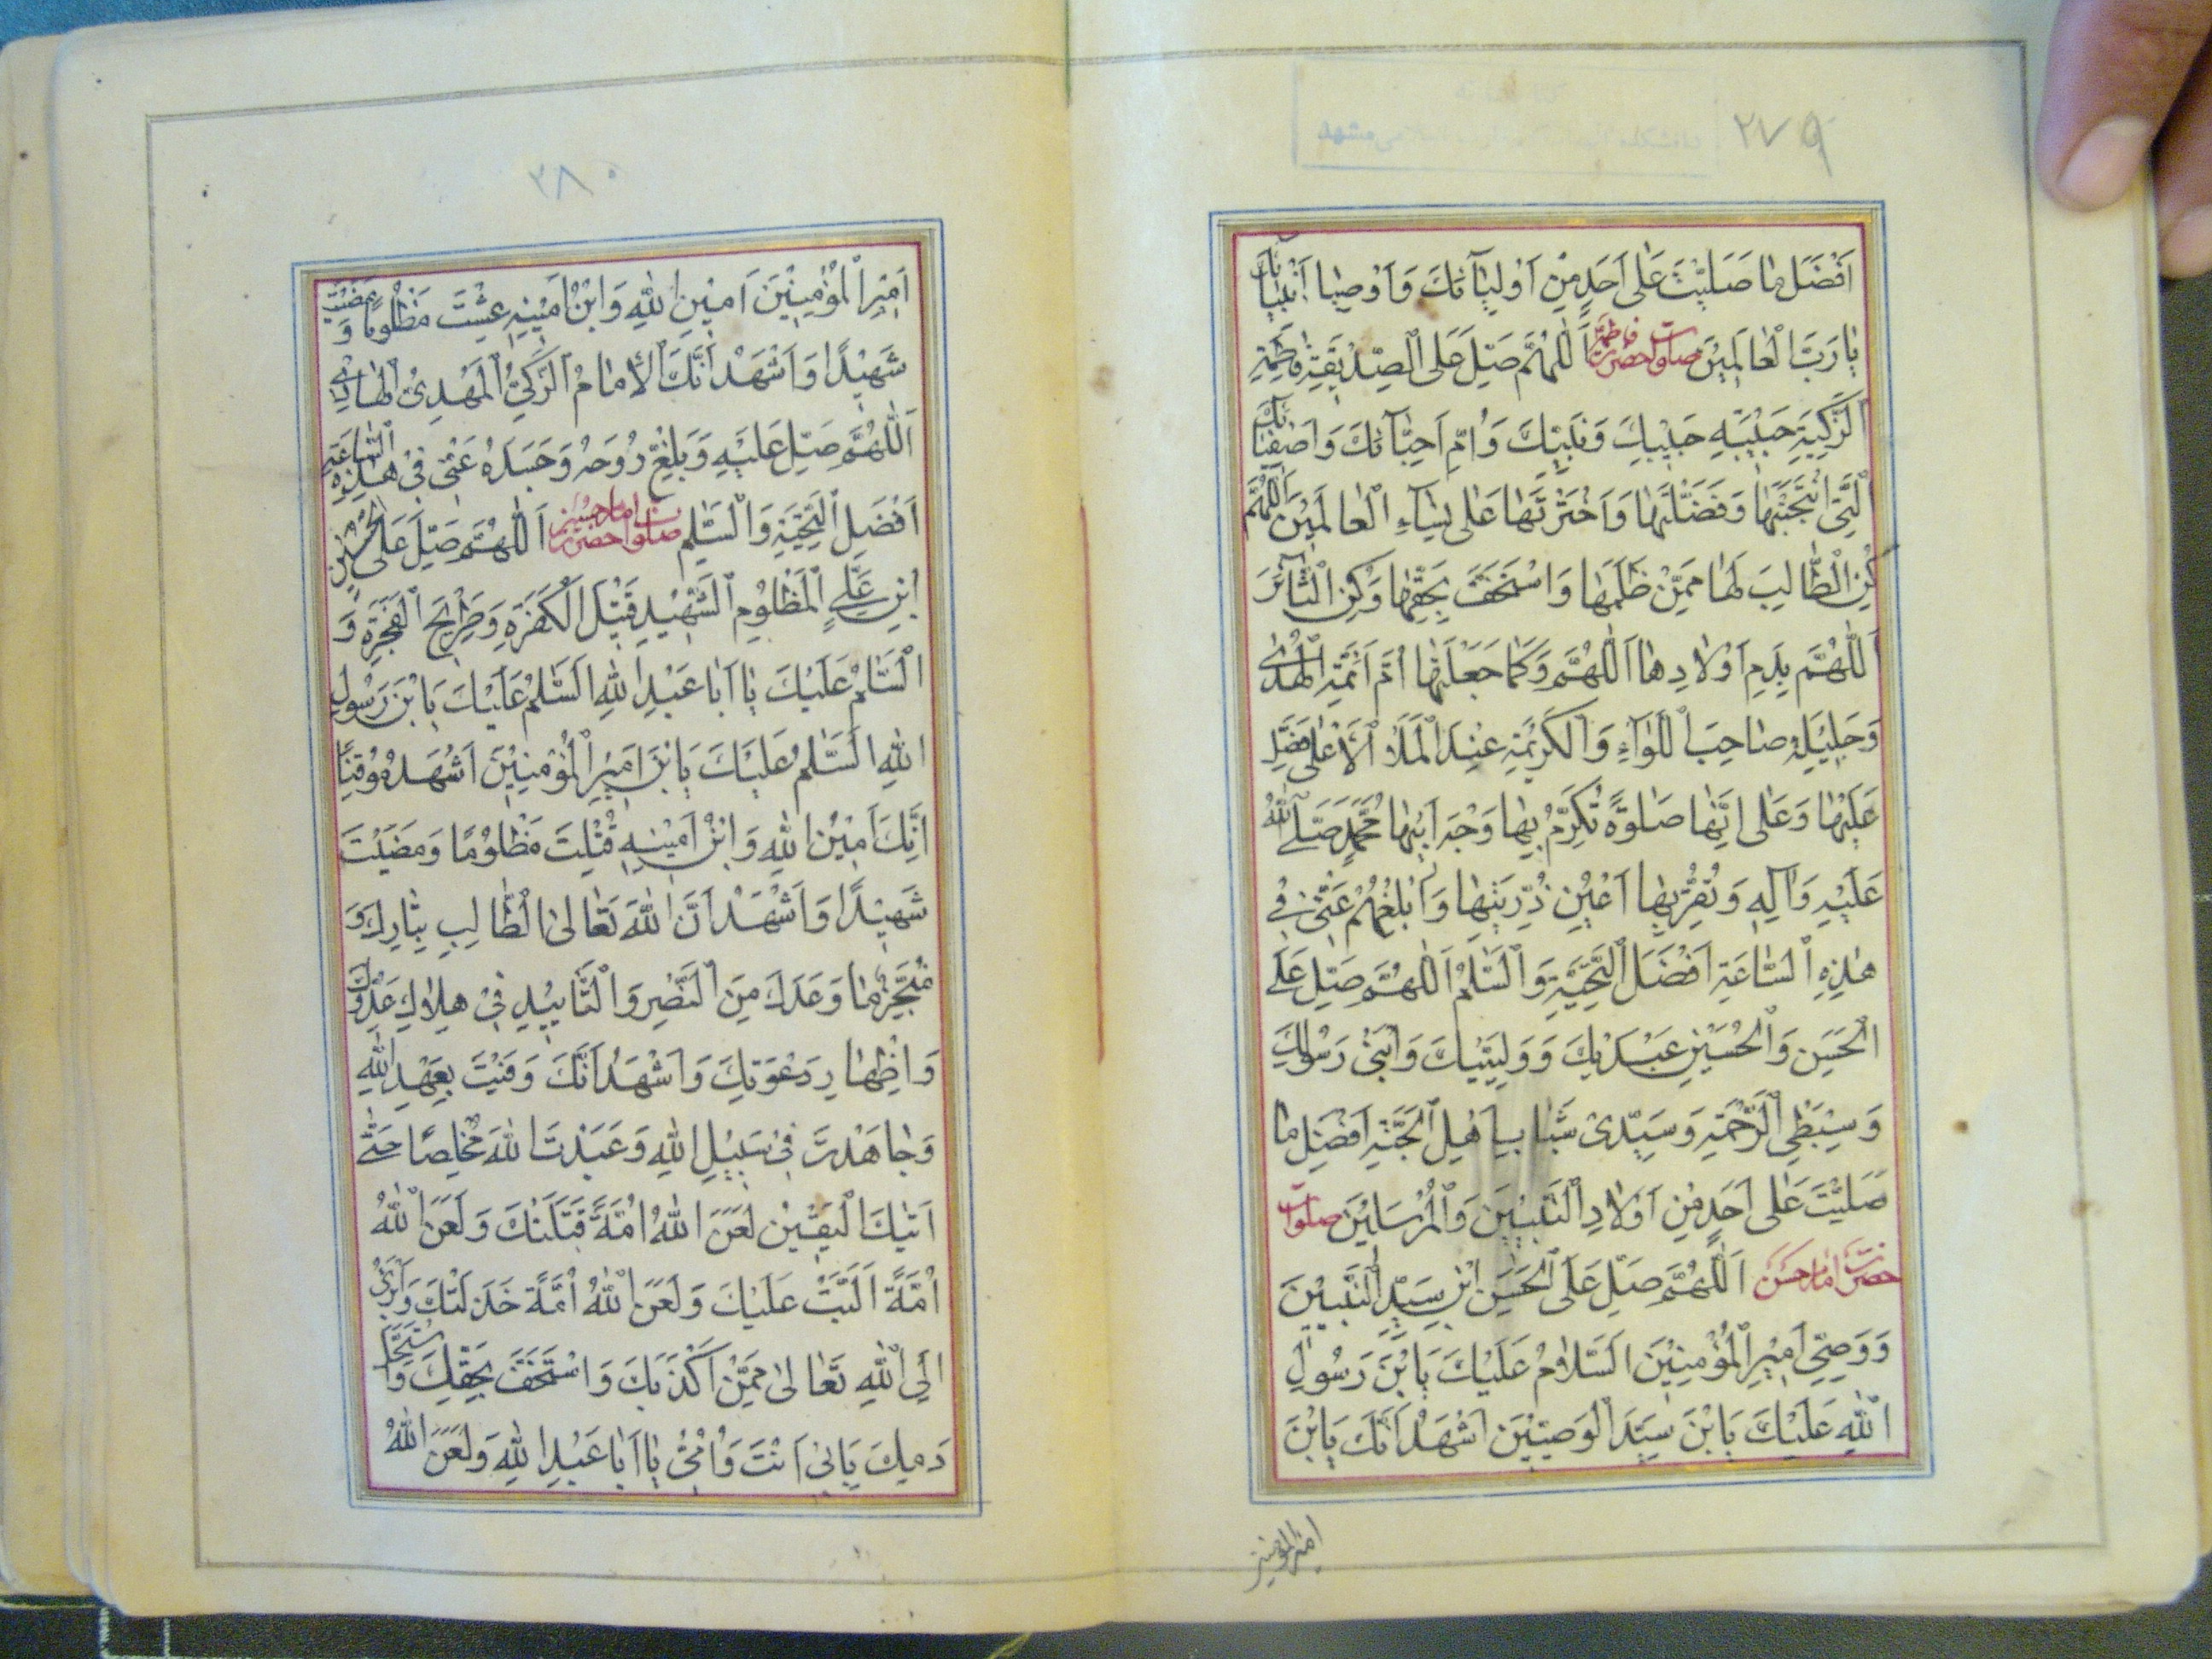 ٢٧٩
اَفْضَلَ مٰا صَلَّيْتَ عَلٰى اَحَدٍ مِنْ اَوْلِيٰآئِكَ وَ اَوْصِيٰا اَنْبِيٰآئِكَ
يٰا رَبَّ الْعٰالَمِيْنَ صلوات حضرت فاطمه اَللّٰهُمَّ صَلِّ عَلَى الصِّدِّيْقَةِ فٰاطِمَةِ
الزَّكِيَّةِ حَبِيْبَةِ حَبِيْبِكَ وَ نَبِيِّكَ وَ اُمِّ اَحِبّٰآئِكَ وَ اَصْفِيٰآئِكَ
الَّتِى انْتَجَبْتَهٰا وَ فَضَّلْتَهٰا وَ اَخْتَرْتَهٰا عَلٰى نِسٰآءِ الْعٰالَمِيْنَ اَللّٰهُمَّ
كُنِ الطّٰالِبَ لَهٰا مِمَّنْ ظَلَمَهٰا وَ اسْتَخَفَّ بِحَقِّهٰا وَ كُنِ الثّٰآئِرَ
اَللّٰهُمَّ بِدَمِ اَوْلٰادِهٰا اَللّٰهُمَّ وَ كَمٰا جَعَلْتَهٰا اُمَّ اَئِمَّةِ الْهُدٰى
وَ حَلِيْلَةَ صٰاحِبَ اللِّوٰآءِ وَ الْكَرِيْمَةِ عِنْدَ الْمَلَاءِ الْاَعْلٰى فَصَلِّ
عَلَيْهٰا وَ عَلٰى اُمِّهٰا صَلٰوةً تُكَرِّمُ بِهٰا وَجْهَ اَبِيْهٰا مُحَمَّدٍ صَلَّى اللّٰهُ
عَلَيْهِ وَ اٰلِهِ وَ تُقِرُّ بِهٰا اَعْيُنَ ذُرِّيَّتِهٰا وَ اَبْلِغْهُمْ عَنّٰى فِى
هٰذِهِ السّٰاعَةِ اَفْضَلَ التَّحِيَّةِ وَ السَّلٰمُ اَللّٰهُمَّ صَلِّ عَلَى
الْحَسَنِ وَ الْحُسَيْنِ عَبْدَيْكَ وَ وَلِيَّيْكَ وَ ابْنَىْ رَسُولِكَ
وَ سِبْطَىِ الرَّحْمَةِ وَ سَيِّدَىْ شَبٰابِ اَهْلِ الْجَنَّةِ اَفْضَلِ مٰا
صَلَّيْتَ عَلٰى اَحَدٍ مِنْ اَوْلٰادِ النَّبِيِّيْنَ وَ الْمُرْسَلِيْنَ صلوات
حضرت امام حسن اَللّٰهُمَّ صَلِّ عَلَى الْحَسَنِ ابْنِ سَيِّدِ النَّبِيِّيْنَ
وَ وَصِىِّ اَمِيْرِ الْمُؤْمِنِيْنَ اَلسَّلٰامُ عَلَيْكَ يَابْنَ رَسُولِ
اللّٰهِ عَلَيْكَ يَابْنَ سَيِّدَ الْوَصِيِّيْنَ اَشْهَدُ اَنَّكَ يَابْنَ
امير المؤمنين
٢٨٠
اَمِيْرِ الْمُؤْمِنِيْنَ اَمِيْنِ اللّٰهِ وَ ابْنُ اَمِيْنِهِ عِشْتَ مَظْلُومًا وَ مَضَيْتَ
شَهِيْدًا وَ اَشْهَدُ اَنَّكَ الْاِمٰامُ الزَّكِىُّ الْمَهْدِىُ الْهٰادِىْ
اَللّٰهُمَّ صَلِّ عَلَيْهِ وَ بَلِّغْ رُوحَهُ وَ جَسَدَهُ عَنّٰى فِىْ هٰذِهِ السّٰاعَةِ
اَفْضَلِ التَّحِيَّةِ وَ السَّلٰمِ صلوات حضرت امام حسين اَللّٰهُمَّ صَلِّ عَلَى الْحُسَيْنِ
ابْنِ عَلِىٍّ الْمَظْلُومِ الشَّهِيْدِ قَتِيْلِ الْكَفَرَةِ وَ طَرِيْحِ الْفَجَرَةِ وَ
السَّلٰمُ عَلَيْكَ يٰا اَبٰا عَبْدِ اللّٰهِ اَلسَّلٰمُ عَلَيْكَ يَابْنَ رَسُولِ
اللّٰهِ اَلسَّلٰمُ عَلَيْكَ يَابْنَ اَمِيْرِ الْمُؤْمِنِيْنَ اَشْهَدُ مُوقِنًا
اَنَّكَ اَمِيْنُ اللّٰهِ وَ ابْنُ اَمِيْنِهِ قُتِلْتَ مَظْلُومًا وَ مَضَيْتَ
شَهِيْدًا وَ اَشْهَدُ اَنَّ اللّٰهَ تَعٰالىٰ الطّٰالِبِ بِثٰارِكَ وَ
مُنْجِزُ مٰا وَعَدَكَ مِنَ النَّصْرِ وَ التَّايِيْدِ فِىْ هِلٰاكِ عَدُوِّكَ
وَ اِظْهٰارِ دَعْوَتِكَ وَ اَشْهَدُ اَنَّكَ وَفَيْتَ بِعَهْدِ اللّٰهِ
وَ جٰاهَدْتَ فِىْ سَبِيْلِ اللّٰهِ وَ عَبَدْتَ اللّٰهَ مُخْلِصًا حَتّٰى
اَتٰيكَ الْيَقِيْنُ لَعَنَ اللّٰهُ اُمَّةً قَتَلَتْكَ وَ لَعَنَ اللّٰهُ
اُمَّةً اَلَّبَتْ عَلَيْكَ وَ لَعَنَ اللّٰهُ اُمَّةً خَذَلَتْكَ وَ اَبْرَءُ
اِلَى اللّٰهِ تَعٰالىٰ مِمَّنْ اَكْذَبَكَ وَ اسْتَخَفَّ بِحَقِّكَ وَ اسْتَحَلَّ
دَمِكَ بِاَبِىْ اَنْتَ وَ اُمّٰى يٰا اَبٰا عَبْدِ اللّٰهِ وَ لَعَنَ اللّٰهُ